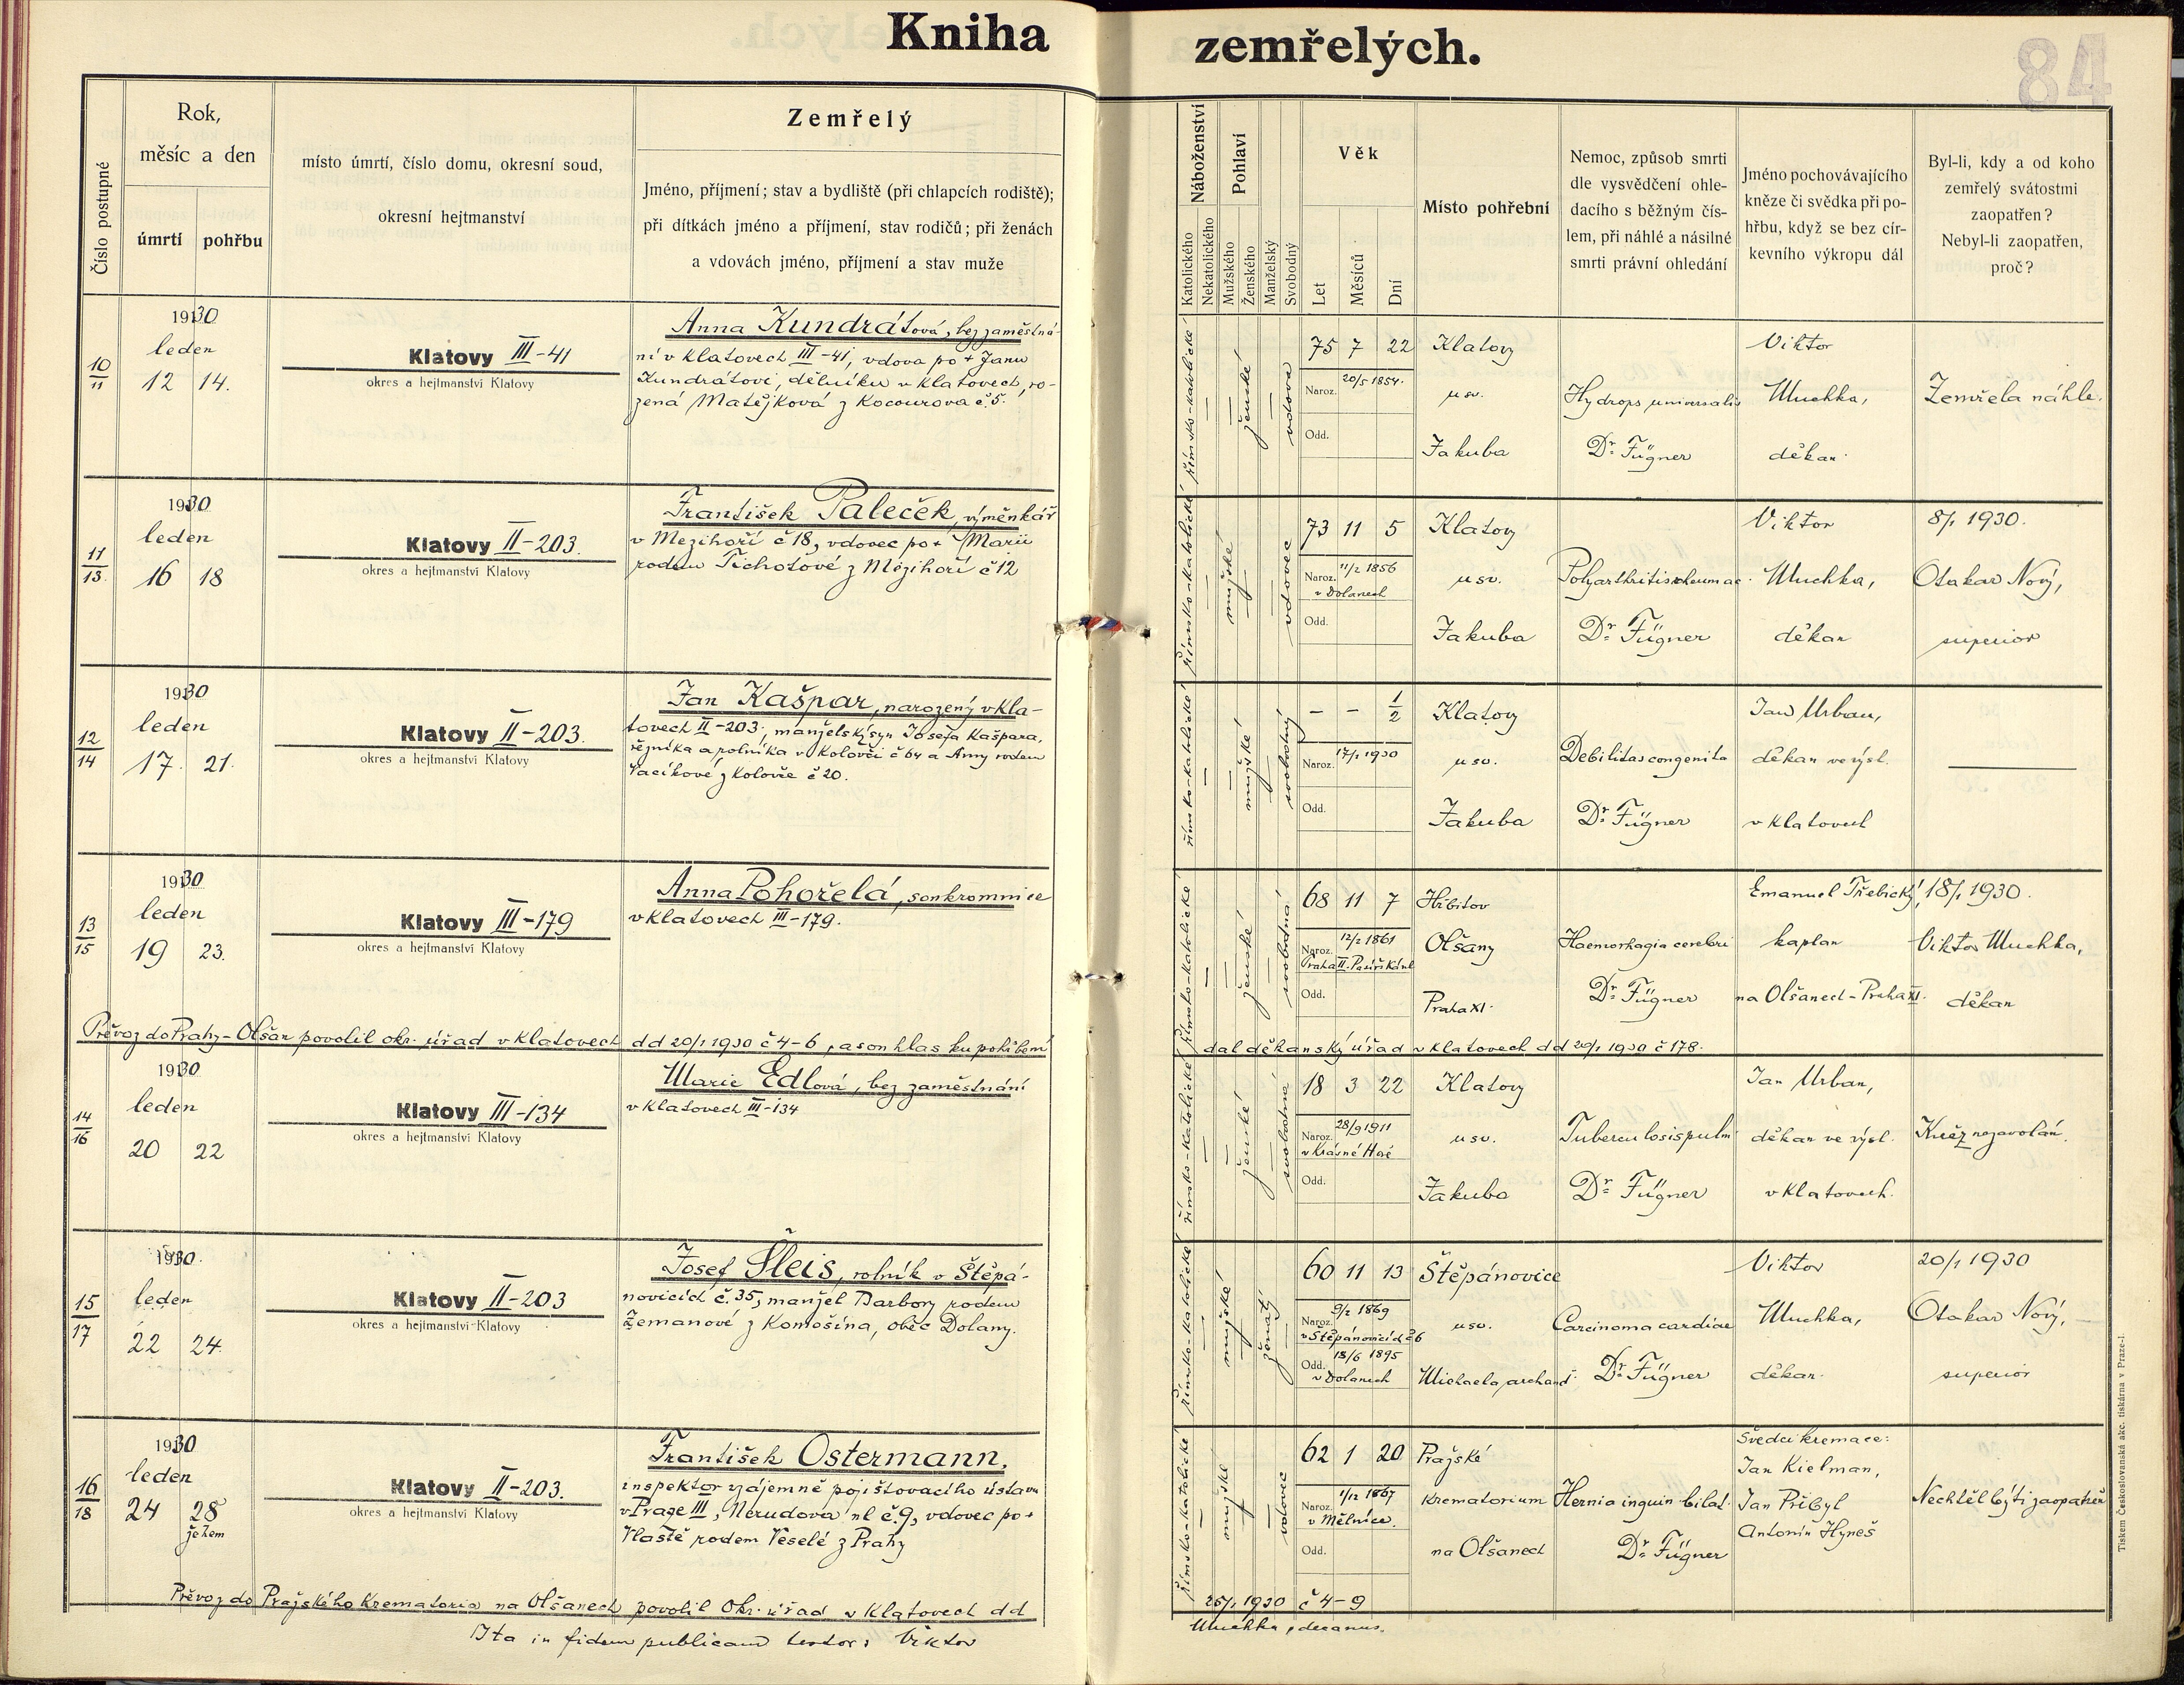 Kniha zemřelých.
84
Číslo postupné
Rok,
měsíc a den
úmrtí
pohřbu
místo úmrtí, číslo domu, okresní soud,
okresní hejtmanství
Zemřelý
Jméno, příjmení; stav a bydliště (při chlapcích rodiště);
při dítkách jméno a příjmení, stav rodičů; při ženách
a vdovách jméno, příjmení a stav muže
Náboženství
Katolického
Nekatolického
Pohlaví
Mužského
Ženského
Manželský
Svobodný
Věk
Let
Měsíců
Dní
Místo pohřební
Nemoc, způsob smrti
dle vysvědčení ohle-
dacího s běžným čís-
lem, při náhlé a násilné
smrti právní ohledání
Jméno pochovávajícího
kněze či svědka při po-
hřbu, když se bez cír-
kevního výkropu dál
Byl-li, kdy a od koho
zemřelý svátostmi
zaopatřen?
Nebyl-li zaopatřen,
proč?
10
11
1930
leden
12 14.
Klatovy III-41
okres a hejtmanství Klatovy
Anna Kundrátová, bez zaměstná-
ní v Klatovech III-41, vdova po + Janu
Kundrátovi, dělníku v Klatovech, ro-
zená Matějková z Kocourova č. 5.
římsko-katolické
ženské
vdova
75 7 22
Naroz. 20/5 1854.
Odd.
Klatovy
u sv.
Jakuba
Hydrops universalis
Dr. Fügner
Viktor
Muchka,
děkan
Zemřela náhle.
11
13.
1930
leden
16 18
Klatovy II-203.
okres a hejtmanství Klatovy
František Paleček, výměnkář
v Mezihoří č 18, vdovec po + Marii
rodem Tichotové z Mezihoří č 12
římsko-katolické
mužské
vdovec
73 11 5
Naroz. 11/2 1856
v Dolanech
Odd.
Klatovy
u sv.
Jakuba
Polyarthritis rheumac.
Dr. Fügner
Viktor
Muchka,
děkan
8/1 1930.
Otakar Nový,
superior
12
14
1930
leden
17. 21.
Klatovy II-203.
okres a hejtmanství Klatovy
Jan Kašpar, narozený v Kla-
tovech II-203, manželský syn Josefa Kašpara,
řezníka a rolníka v Kolovči č 64 a Anny rodem
Vacíkové z Kolovče č 20.
římsko-katolické
mužské
svobodný
— — 1/2
Naroz. 17/1 1930
Odd.
Klatovy
u sv.
Jakuba
Debilitas congenita
Dr. Fügner
Jan Urban,
děkan ve výsl.
v Klatovech
13
15
1930
leden
19 23.
Klatovy III-179
okres a hejtmanství Klatovy
Anna Pohořelá, soukromnice
v Klatovech III-179.
římsko-katolické
ženské
svobodná
68 11 7
Naroz. 12/2 1861
Praha II.
Odd.
Hřbitov
Olšany
Praha XI.
Haemorhagia cerebri
Dr. Fügner
Emanuel Třebický,
kaplan
na Olšanech - Praha XI.
18/1 1930.
Viktor Muchka,
děkan
Převoz do Prahy-Olšan povolil okr. úřad v Klatovech dd 20/1 1930 č 4-6, a souhlas ku pohřbení
dal děkanský úřad v Klatovech dd 20/1 1930 č 178.
14
16
1930
leden
20 22
Klatovy III-134
okres a hejtmanství Klatovy
Marie Edlová, bez zaměstnání
v Klatovech III-134
římsko-katolické
ženské
svobodná
18 3 22
Naroz. 28/9 1911
v Krásné Hoře
Odd.
Klatovy
u sv.
Jakuba
Tuberculosis pulm
Dr. Fügner
Jan Urban,
děkan ve výsl.
v Klatovech.
Kněz nezavolán.
15
17
1930.
leden
22 24.
Klatovy II-203
okres a hejtmanství Klatovy
Josef Šleis, rolník v Štěpá-
novicích č. 35, manžel Barbory rodem
Zemanové z Komošína, obec Dolany.
římsko-katolické
mužské
ženatý
60 11 13
Naroz. 9/2 1869
v Štěpánovicích č 6
Odd. 18/6 1895
v Dolanech
Štěpánovice
u sv.
Michaela, archand.
Carcinoma cardiae
Dr. Fügner
Viktor
Muchka,
děkan.
20/1 1930
Otakar Nový,
superior
16
18
1930
leden
24 28
žehem
Klatovy II-203.
okres a hejtmanství Klatovy
František Ostermann,
inspektor vzájemně pojišťovacího ústavu
v Praze III, Nerudova ul č. 9, vdovec po +
Vlastě rodem Veselé z Prahy
římsko-katolické
mužské
vdovec
62 1 20
Naroz. 1/12 1867
v Mělníce.
Odd.
Pražské
krematorium
na Olšanech
Hernia inguin bilat.
Dr. Fügner
Svědci kremace:
Jan Kielman,
Jan Přibyl
Antonín Hyneš
Nechtěl býti zaopatřen
Převoz do Pražského krematoria na Olšanech povolil Okr. úřad v Klatovech dd
25/1 1930 č 4-9
Ita in fidem publicam testor: Viktor
Muchka, decanus.
Tiskem Československá akc. tiskárna v Praze-I.